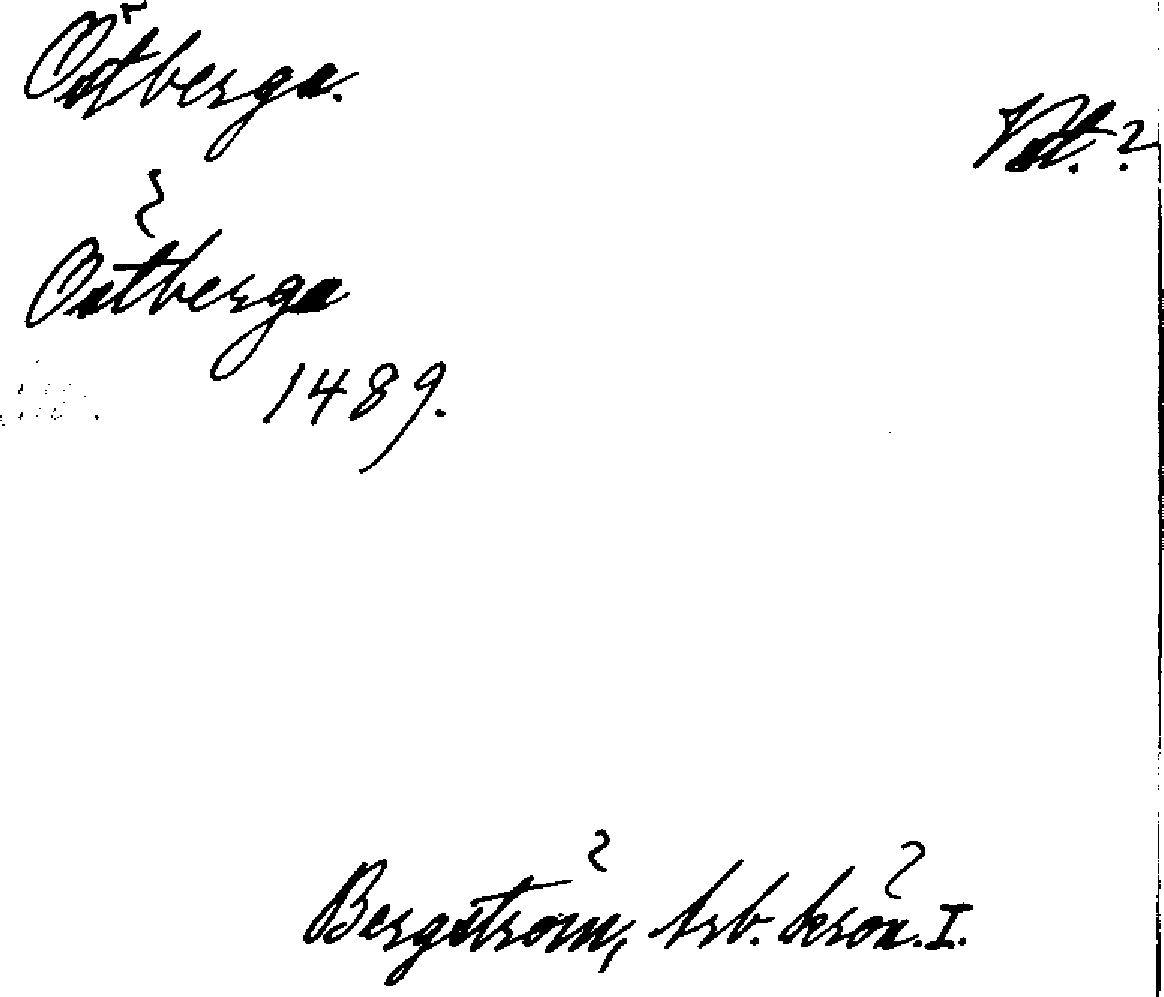 Östberga.
Vst. ?
Östberga
1489.
Bergström, Arb. krön. I.